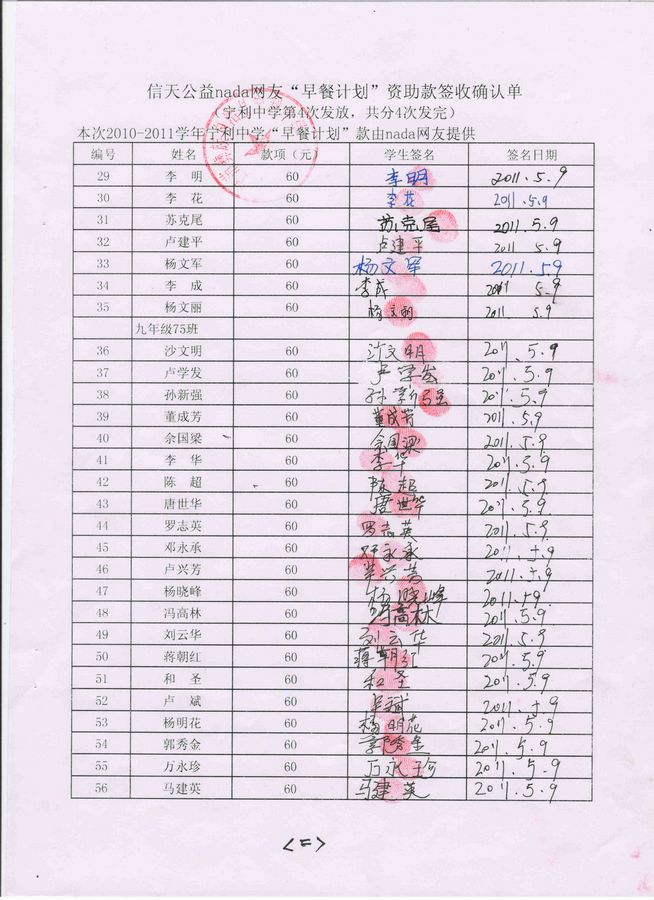 信天公益nada网友“早餐计划”资助款签收确认单
（宁利中学第4次发放，共分4次发完）
本次2010-2011学年宁利中学“早餐计划”款由nada网友提供
编号 姓名 款项（元） 学生签名 签名日期
29 李 明 60 李明 2011.5.9
30 李 花 60 李花 2011.5.9
31 苏克尾 60 苏克尾 2011.5.9
32 卢建平 60 卢建平 2011 5.9
33 杨文军 60 杨文军 2011.5.9
34 李 成 60 李成 2011 5.9
35 杨文丽 60 杨文丽 2011 5.9
九年级75班
36 沙文明 60 沙文明 2011.5.9
37 卢学发 60 卢学发 2011.5.9
38 孙新强 60 孙新强 2011.5.9
39 董成芳 60 董成芳 2011.5.9
40 余国梁 60 余国梁 2011.5.9
41 李 华 60 李华 2011.5.9
42 陈 超 60 陈超 2011.5.9
43 唐世华 60 唐世华 2011.5.9
44 罗志英 60 罗志英 2011.5.9
45 邓永承 60 邓永承 2011.5.9
46 卢兴芳 60 卢兴芳 2011.5.9
47 杨晓峰 60 杨晓峰 2011.5.9
48 冯高林 60 冯高林 2011.5.9
49 刘云华 60 刘云华 2011.5.9
50 蒋朝红 60 蒋朝红 2011.5.9
51 和 圣 60 和圣 2011.5.9
52 卢 斌 60 卢斌 2011.5.9
53 杨明花 60 杨明花 2011.5.9
54 郭秀金 60 郭秀金 2011.5.9
55 万永珍 60 万永珍 2011.5.9
56 马建英 60 马建英 2011.5.9
<二>